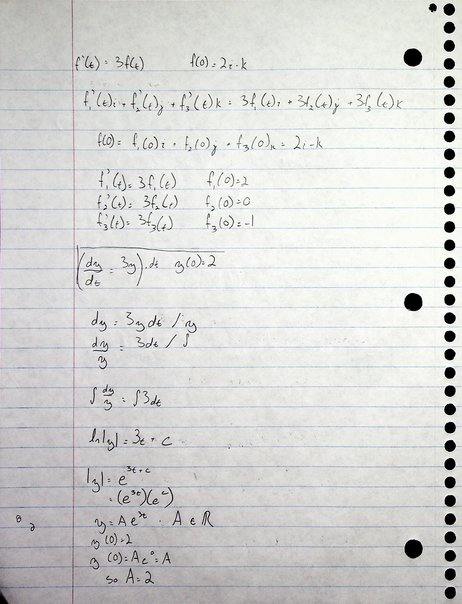 f'(t) = 3f(t)    f(0) = 2i - k
f₁'(t)i + f₂'(t)j + f₃'(t)k = 3f₁(t)i + 3f₂(t)j + 3f₃(t)k
f(0) = f₁(0)i + f₂(0)j + f₃(0)k = 2i - k
f₁'(t) = 3f₁(t)    f₁(0) = 2
f₂'(t) = 3f₂(t)    f₂(0) = 0
f₃'(t) = 3f₃(t)    f₃(0) = -1
(dy/dt = 3y)·dt    y(0) = 2
dy = 3y dt / y
dy/y = 3dt / ∫
∫ dy/y = ∫3dt
ln|y| = 3t + c
|y| = e^(3t+c)
= (e^(3t))(e^c)
y = Ae^(3t) · A ∈ ℝ
y(0) = 2
y(0) = Ae^0 = A
so A = 2